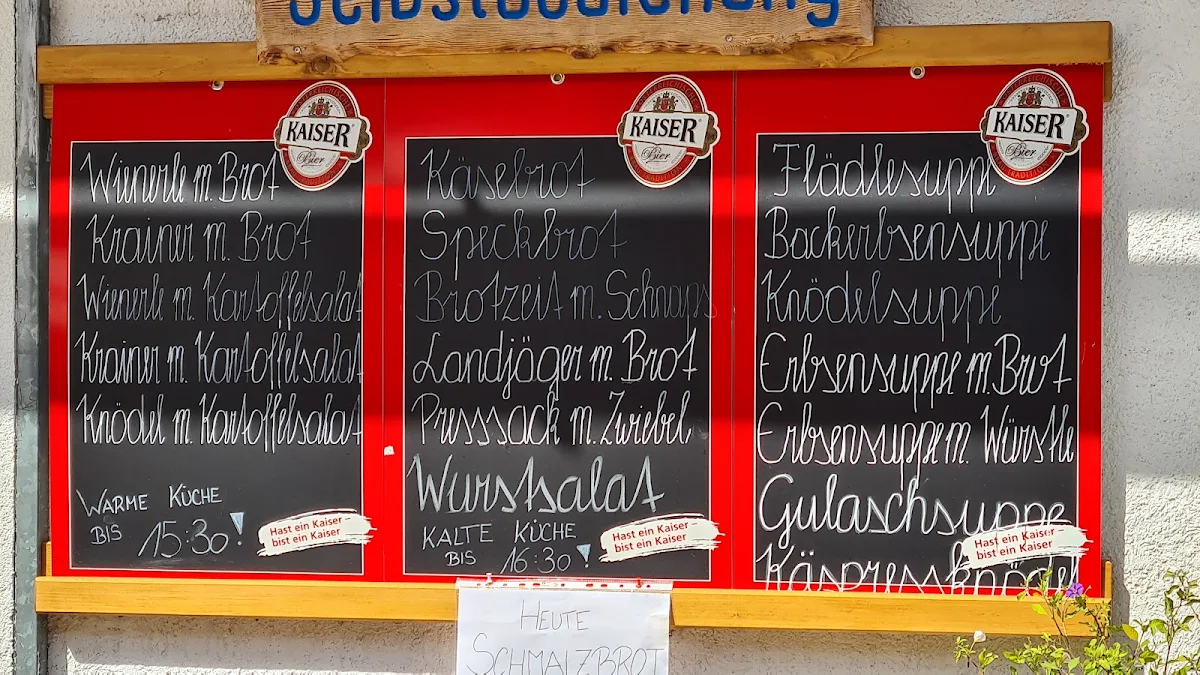 Selbstbedienung
KAISER
Bier
Wienerle m. Brot
Krainer m. Brot
Wienerle m. Kartoffelsalat
Krainer m. Kartoffelsalat
Knödel m. Kartoffelsalat
WARME KÜCHE
BIS 15:30!
Hast ein Kaiser –
bist ein Kaiser
KAISER
Bier
Käsebrot
Speckbrot
Brotzeit m. Schnaps
Landjäger m. Brot
Presssack m. Zwiebel
Wurstsalat
KALTE KÜCHE
BIS 16:30!
Hast ein Kaiser –
bist ein Kaiser
KAISER
Bier
TRADITION
Flädlesuppe
Backerbsensuppe
Knödelsuppe
Erbsensuppe m. Brot
Erbsensuppe m. Würstle
Gulaschsuppe
Hast ein Kaiser –
bist ein Kaiser
Käspressknödel
HEUTE
SCHMALZBROT